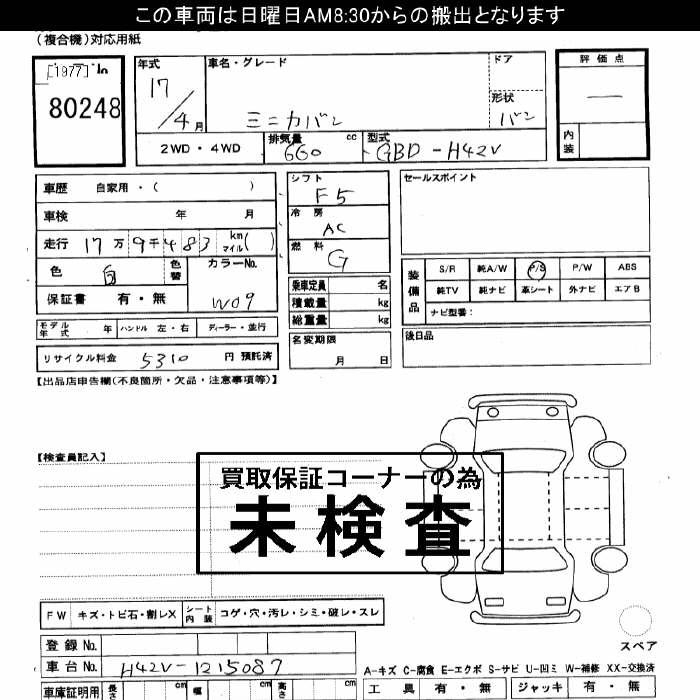 この車両は日曜日AM8:30からの搬出となります
(複合機)対応用紙
[1977]
80248
年式
17/4月
車名・グレード
ミニカバン
ドア
形状
バン
評価点
―
内装
2WD・4WD
排気量 cc
660
型式
GBD-H42V
車歴 自家用・( )
車検 年 月
走行 17万9千483 km マイル( )
色 白 色替
カラーNo.
W09
保証書 有・無
モデル年式 年 ハンドル 左・右 ディーラー・並行
リサイクル料金 5310 円 預託済
シフト
F5
冷房
AC
燃料
G
乗車定員 名
積載量 kg
総重量 kg
名変期限
月 日
セールスポイント
装備品
S/R 純A/W P/S P/W ABS
純TV 純ナビ 革シート 外ナビ エアB
ナビ型番:
後日品
【出品店申告欄(不良箇所・欠品・注意事項等)】
【検査員記入】
買取保証コーナーの為
未検査
FW キズ・トビ石・割レX シート内装 コゲ・穴・汚レ・シミ・破レ・スレ
登録No.
車台No. H42V-1215087
車庫証明用 長さ cm 幅 cm 高さ cm
スペア
A-キズ C-腐食 E-エクボ S-サビ U-凹ミ W-補修 XX-交換済
工具 有・無 ジャッキ 有・無